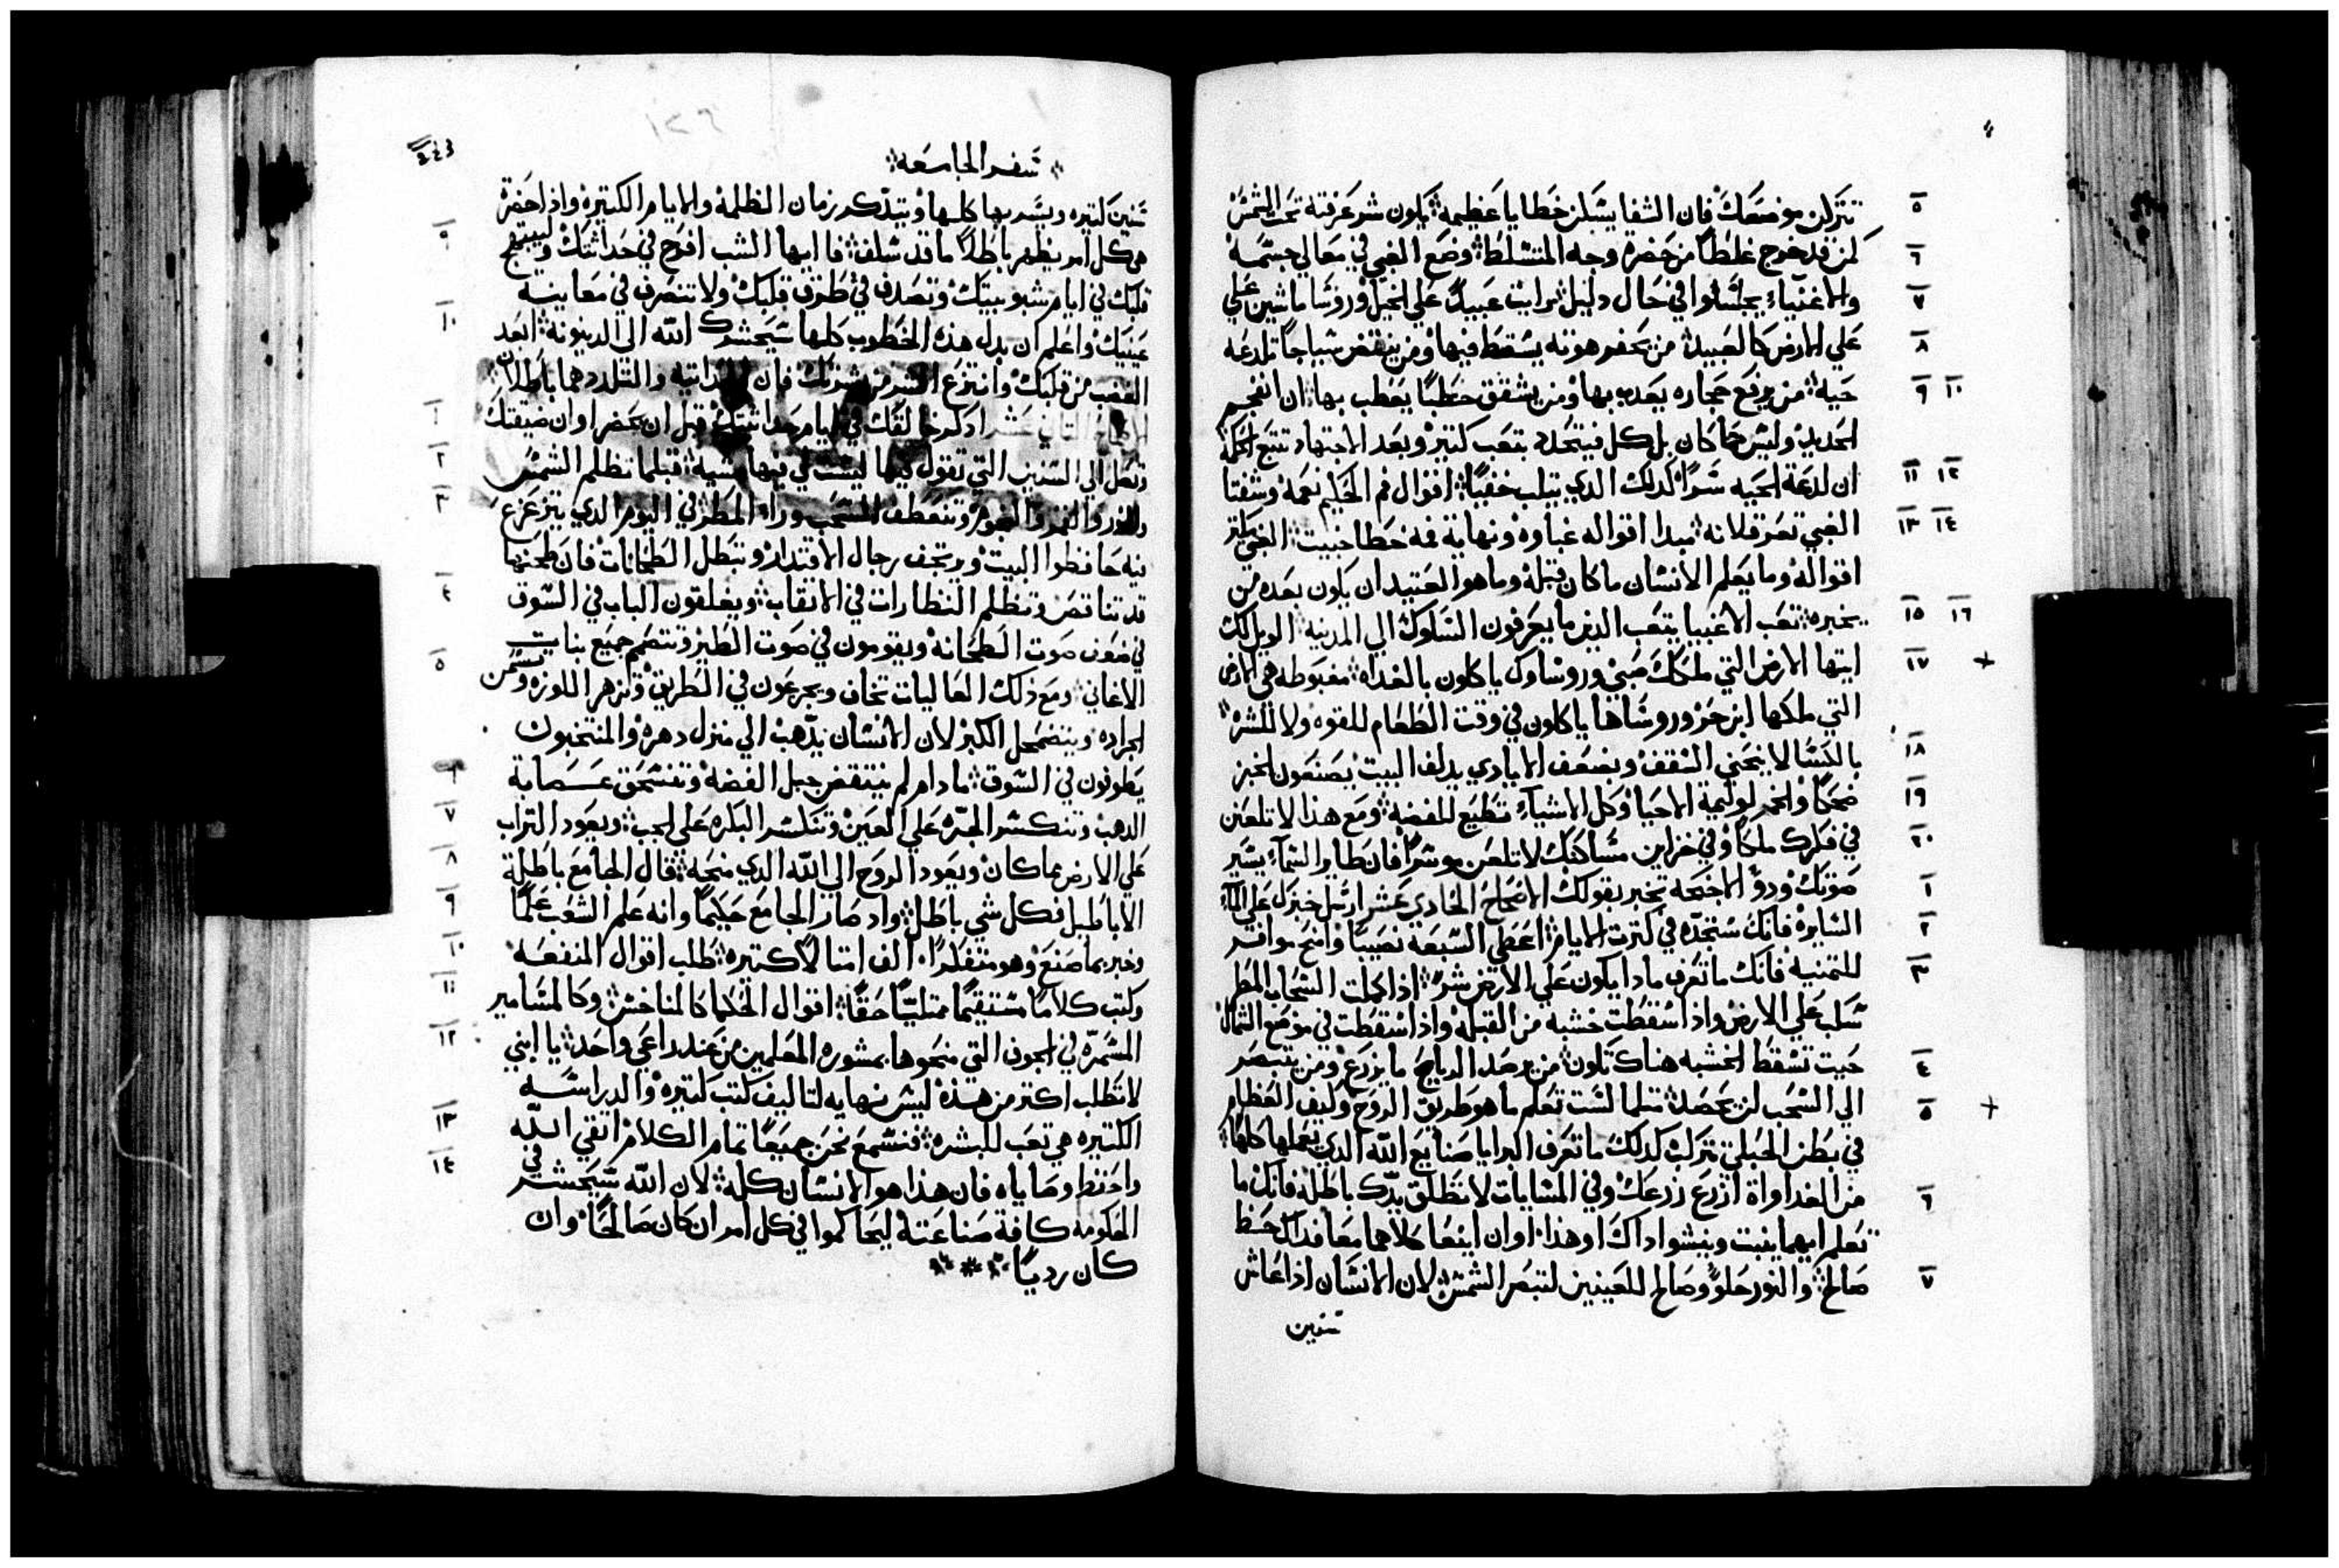 تتركن موضعك فان الشفا يسكن خطايا عظيمه يكون شر عرفته تحت الشمس
كمن قد خرج غلطا من حضرة وجه المتسلط وضع الغبي في معالي جسمه
والاغنياء يجلسوا في حال دليل رايت عبيدا علي الخيل وروسا ماشين علي
علي الارض كالعبيد من يحفر هوته يسقط فيها ومن ينقض سياجا تلدغه
حية من يرفع حجاره يعدب بها ومن يشقق حطبا يعطب بها ان انفجم
الحديد وليس كان بل كل فيتحدد بتعب كتير وبعد الاجتهاد تتبع الحكمة
ان لدغة الحيه سرا كدلك الدي يتلب خفيا اقوال فم الحكيم نعمه وشفتا
الغبي تعرقلانه مبدا اقواله غباوه ونهاية فمه خطا خبيت الغبي يكتر
اقواله وما يعلم الانسان ما كان قبله وما هو العتيد ان يكون بعده من
يخبره تعب الاغبيا يتعب الدين ما يعرفون السلوك الي المدينه الويل لك
ايتها الارض التي ملكك صبي وروساوك ياكلون بالغداه مغبوطه هي الارض
التي ملكها ابن حر وروساها ياكلون في وقت الطعام للقوه ولا للشره
بالكسالا ينحني السقف وبضعف الايادي يدلف البيت يصنعون الخبز
ضحكا والخمر لوليمة الاحيا وكل الاشياء تطيع للفضه ومع هدا لا تلعن
في فكرك ملكا وفي خزاين مساكنك لا تلعن موسرا فان طاير السماء يسير
صوتك ودو الاجنحه يخبر بقولك الاصحاح الحادي عشر ارسل خبزك علي الماء
السايره فانك ستجده في كترت الايام اعطي السبعة نصيبا وامنح موافر
للتمنيه فانك ما تعرف مادا يكون علي الارض شر ادا كملت السحاب المطر
سكب علي الارض واذا سقطت خشبه من القبله واذا سقطت في موضع الشمال
حيت تسقط الخشبه هناك تكون من يرصد الرياح ما يزرع ومن يتبصر
الي السحب لن يحصد متلما لست تعلم ما هو طريق الروح وكيف العظام
في بطن الحبلي تتركب كدلك ما تعرف البرايا صنايع الله الدي يعملها كلها
من الغداواة ازرع زرعك وفي المسايات لا تطلق يدك باطلة فانك ما
تعلم ايهما ينبت وينشوا داك او هدا وان اينعا كلاهما معا فداك حظ
صالح والنور حلو وصالح للعينين لتبصر الشمس لان الانسان اذا عاش
سنين
سفر الجامعه
سنين كتيره ويسر بها كلها ويتذكر زمان الظلمة والايام الكتيره واذا حضرة
هي كل امر يظهر باطلا ما قد سلف فا ايها الشب افرح في حداثتك وليبتهج
قلبك في ايام شبوبيتك وتصدف في طرق قلبك ولا تنصرف في معاينه
عينيك واعلم ان بدل هذه الخطوب كلها سيحشرك الله الي الدينونة ابعد
الغضب من قلبك وانتزع الشر من بشرتك فان الحداتيه والتلدد هما باطلان
الاصحاح التاني عشر ادكر خالقك في ايام حداثتك قبل ان يحضر اوان ضيقتك
وتصل الي السنين التي تقول فيها ليست لي فيها مشيه قبلما تظلم الشمس
والنور والقمر والنجوم وتنعطف السحب وراء المطر في اليوم الدي يتزعزع
فيه حافظوا البيت ويرتجف رجال الاقتدار وتبطل الطحانات فان طحنها
قد تناقص وتظلم النظارات في الاتقاب ويغلقون الباب في السوق
في ضعف صوت الطحانه ويقومون في صوت الطير وتتصم جميع بنات
الاغاني ومع ذلك العاليات تخاف ويجزعون في الطريق وتزهر اللوزه وتسمن
الجراده ويتضمحل الكبر لان الانسان يذهب الي منزل دهره والمنتحبون
يطوفون في السوق ما دام لم ينتقض حبل الفضة وتنسحق عصابة
الدهب وتنكسر الجره علي العين وتنكسر البكره علي الجب ويعود التراب
علي الارض بما كان ويعود الروح الي الله الدي منحه قال الجامع باطلة
الاباطيل فكل شي باطل واد صار الجامع حكيما وانه علم الشعب علما
وخبر بما صنع وهو متفكرا الف امتالا كتيره طلب اقوال المنفعه
وكتب كلاما مستقيما ممتليا حقا اقوال الحكما كالمناخس وكالمسامير
المسمرة في الجوف التي منحوها بمشوره المعلمين من عند راعي واحد يا ابني
لا تطلب اكتر من هذه ليس نهايه لتاليف كتب كتيره والدراسه
الكتيره هي تعب للبشره فنسمع نحن جميعا تمام الكلام اتقي الله
واحتفظ وصاياه فان هذا هو الانسان كله لان الله سيحشر في
الحكومه كافة صناعته ليحاكموا في كل امر ان كان صالحا وان
كان رديا